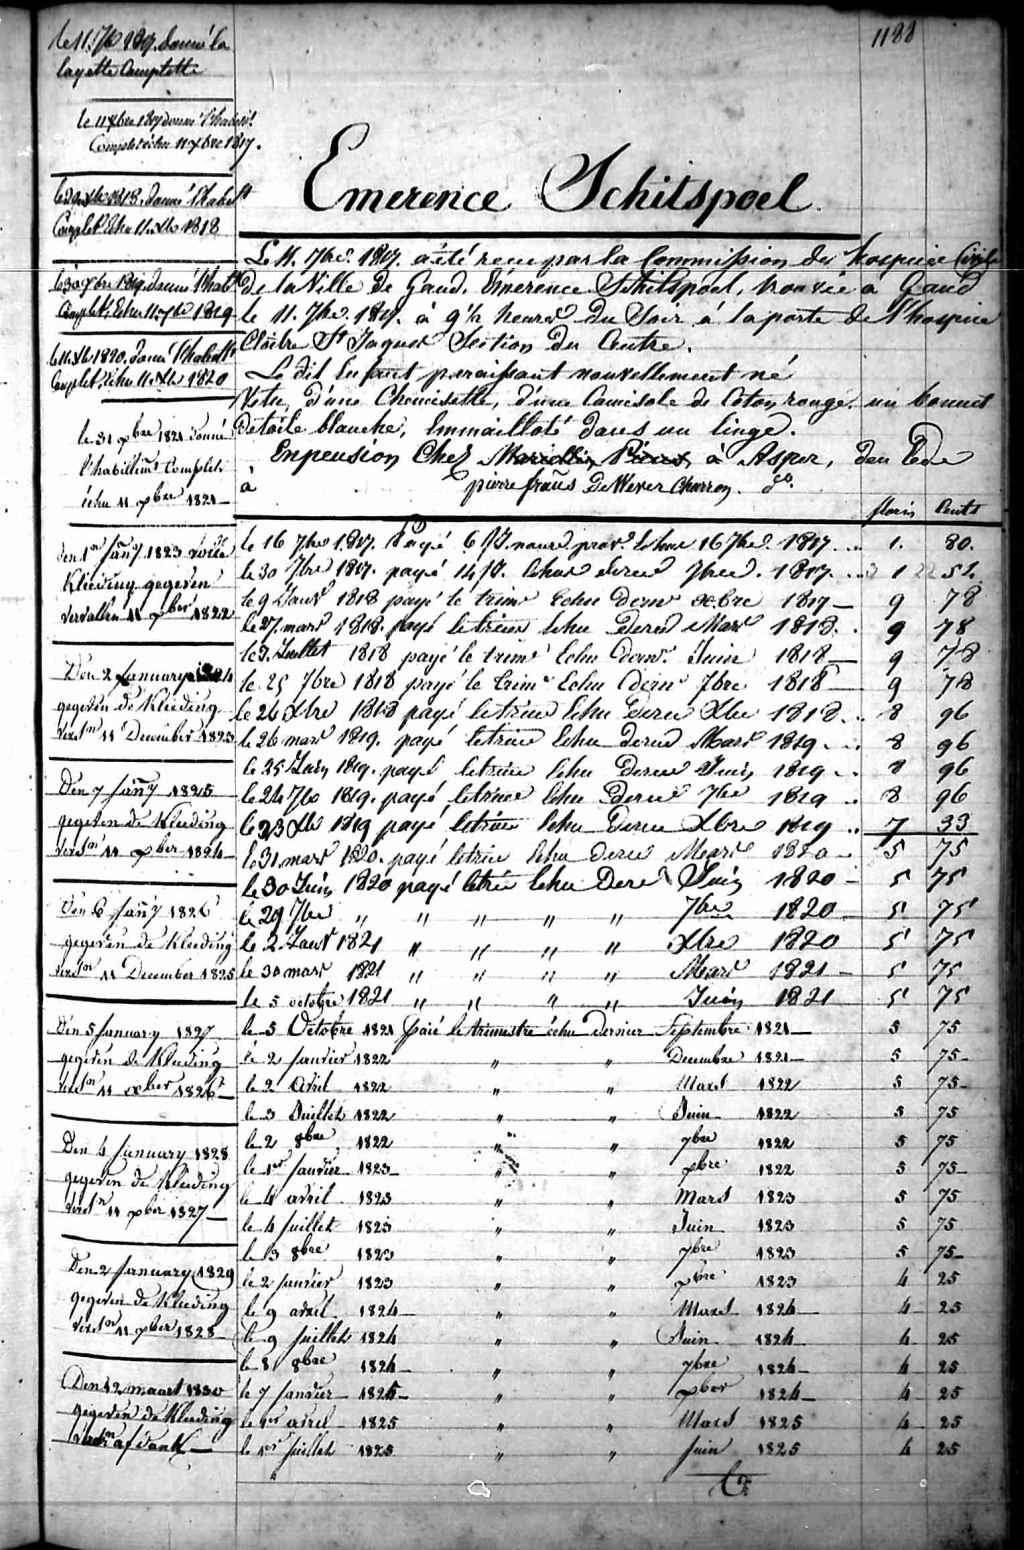 1188
le 11. 7bre 1817. donné la
layette Complette
le 11 xbre 1817 donné l'habill.t
Complet échu 11 xbre 1817.
donné l'habill.t
Complet. Echu 11 Xbre 1818
donné l'habill.t
Complet. Echu 11 Xbre 1819
le 11 Xbre 1820. donné l'habill.t
Complet. échu 11 Xbre 1820
le 31 xbre 1821 donné
l'habillem.t Complet
échu 11 xbre 1821 —
Den 1en Jany 1823
Kleeding gegeven
Vervallen 11 xber 1822
Den 2 January 1824
gegeven de Kleeding
Versn 11 December 1823
Den 7 Jany 1825
gegeven de Kleeding
Versn 11 xber 1824 —
Den 6 Jany 1826
gegeven de Kleeding
Versn 11 December 1825
Den 5 January 1827
gegeven de Kleeding
Versn 11 xber 1826
Den 4 January 1828
gegeven de Kleeding
Versn 11 xber 1827 —
Den 2 January 1829
gegeven de Kleeding
Versn 11 xber 1828 —
Den 12 maart 1830
gegeven de Kleeding
Emerence Schitspoel.
Le 11. 7bre. 1817. a été reçu par la Commission des hospices Civils
de la Ville de Gand. Emerence Schitspoel, trouvée à Gand
le 11. 7bre. 1817. à 9½ heures du Soir à la porte de l'hospice
Cloître St Jaques Section du Centre.
Le dit Enfant paraissant nouvellement né
Vetu, d'une Chemisette, d'une Camisole de Coton rouge. un bonnet
de toile blanche, Emmailloté dans un linge.
En pension Chez à Asper,
à pierre frañs DeWever Charron. do.
florin Cents
le 16 7bre 1817. Payé 6 Js. nourr. prov. échus 16 7bre. 1817 ... 1. 80.
le 30 7bre 1817. payé 14 Js. échus dernr 7bre. 1817. ... 1 52
le 9 Janvr 1818 payé le trimr Echu dernr xbre 1817 — 9 78
le 27. mars 1818. payé le trimr Echu dernr Mars 1818. . 9 78
le 3. Juillet 1818 payé le trimr Echu dernr. Juin 1818 — 9 78
le 25 7bre 1818 payé le trimr Echu dernr 7bre 1818 — 9 78
le 26 Xbre 1818 payé le trimr Echu dernr Xbre 1818. . 8 96
le 26 mars 1819. payé le trimr Echu dernr Mars 1819 . . 8 96
le 25 Juin 1819. payé le trimr Echu dernr Juin 1819 . . 8 96
le 24 7bre 1819. payé le trimr Echu dernr 7bre 1819 .. 8 96
le 23 Xbre 1819 payé le trimr Echu dernr Xbre 1819 .. 7 33
le 31 mars 1820. payé le trimr Echu dernr Mars 1820 . 5 75
le 30 Juin 1820 payé le trim Echu dernr Juin 1820 — 5 75
le 29 7bre „ „ „ „ „ 7bre 1820 — 5 75
le 2 Janvr 1821 „ „ „ „ Xbre 1820 5 75
le 30 mars 1821 „ „ „ „ Mars 1821 — 5 75
le 5 octobre 1821 „ „ „ „ Juin 1821 5 75
le 5 Octobre 1821 Païé le trimestre échu dernier Septembre 1821 — 5 75
le 2 janvier 1822 „ „ Decembre 1821 — 5 75 —
le 2 Avril 1822 „ „ Mars 1822 5 75 —
le 3 Juillet 1822 „ „ Juin 1822 5 75
le 2 8bre 1822 „ „ 7bre 1822 5 75
le 1er janvier 1823 — „ „ xbre 1822 5 75 —
le 4 avril 1823 „ „ Mars 1823 5 75
le 4 juillet 1823 „ „ Juin 1823 5 75
le 3 8bre 1823 „ „ 7bre 1823 5 75 —
le 2 janvier 1823 „ „ xbre 1823 4 25
le 9 avril 1824 — „ „ Mars 1824 — 4 25
le 9 juillet 1824 „ „ Juin 1824 4 25
le 8 8bre 1824 „ „ 7bre 1824 — 4 25
le 7 janvier — 1825 — „ „ xber 1824 — 4 25
le 1er avril 1825 „ „ Mars 1825 4 25
le 1er juillet 1825 „ „ juin 1825 4 25